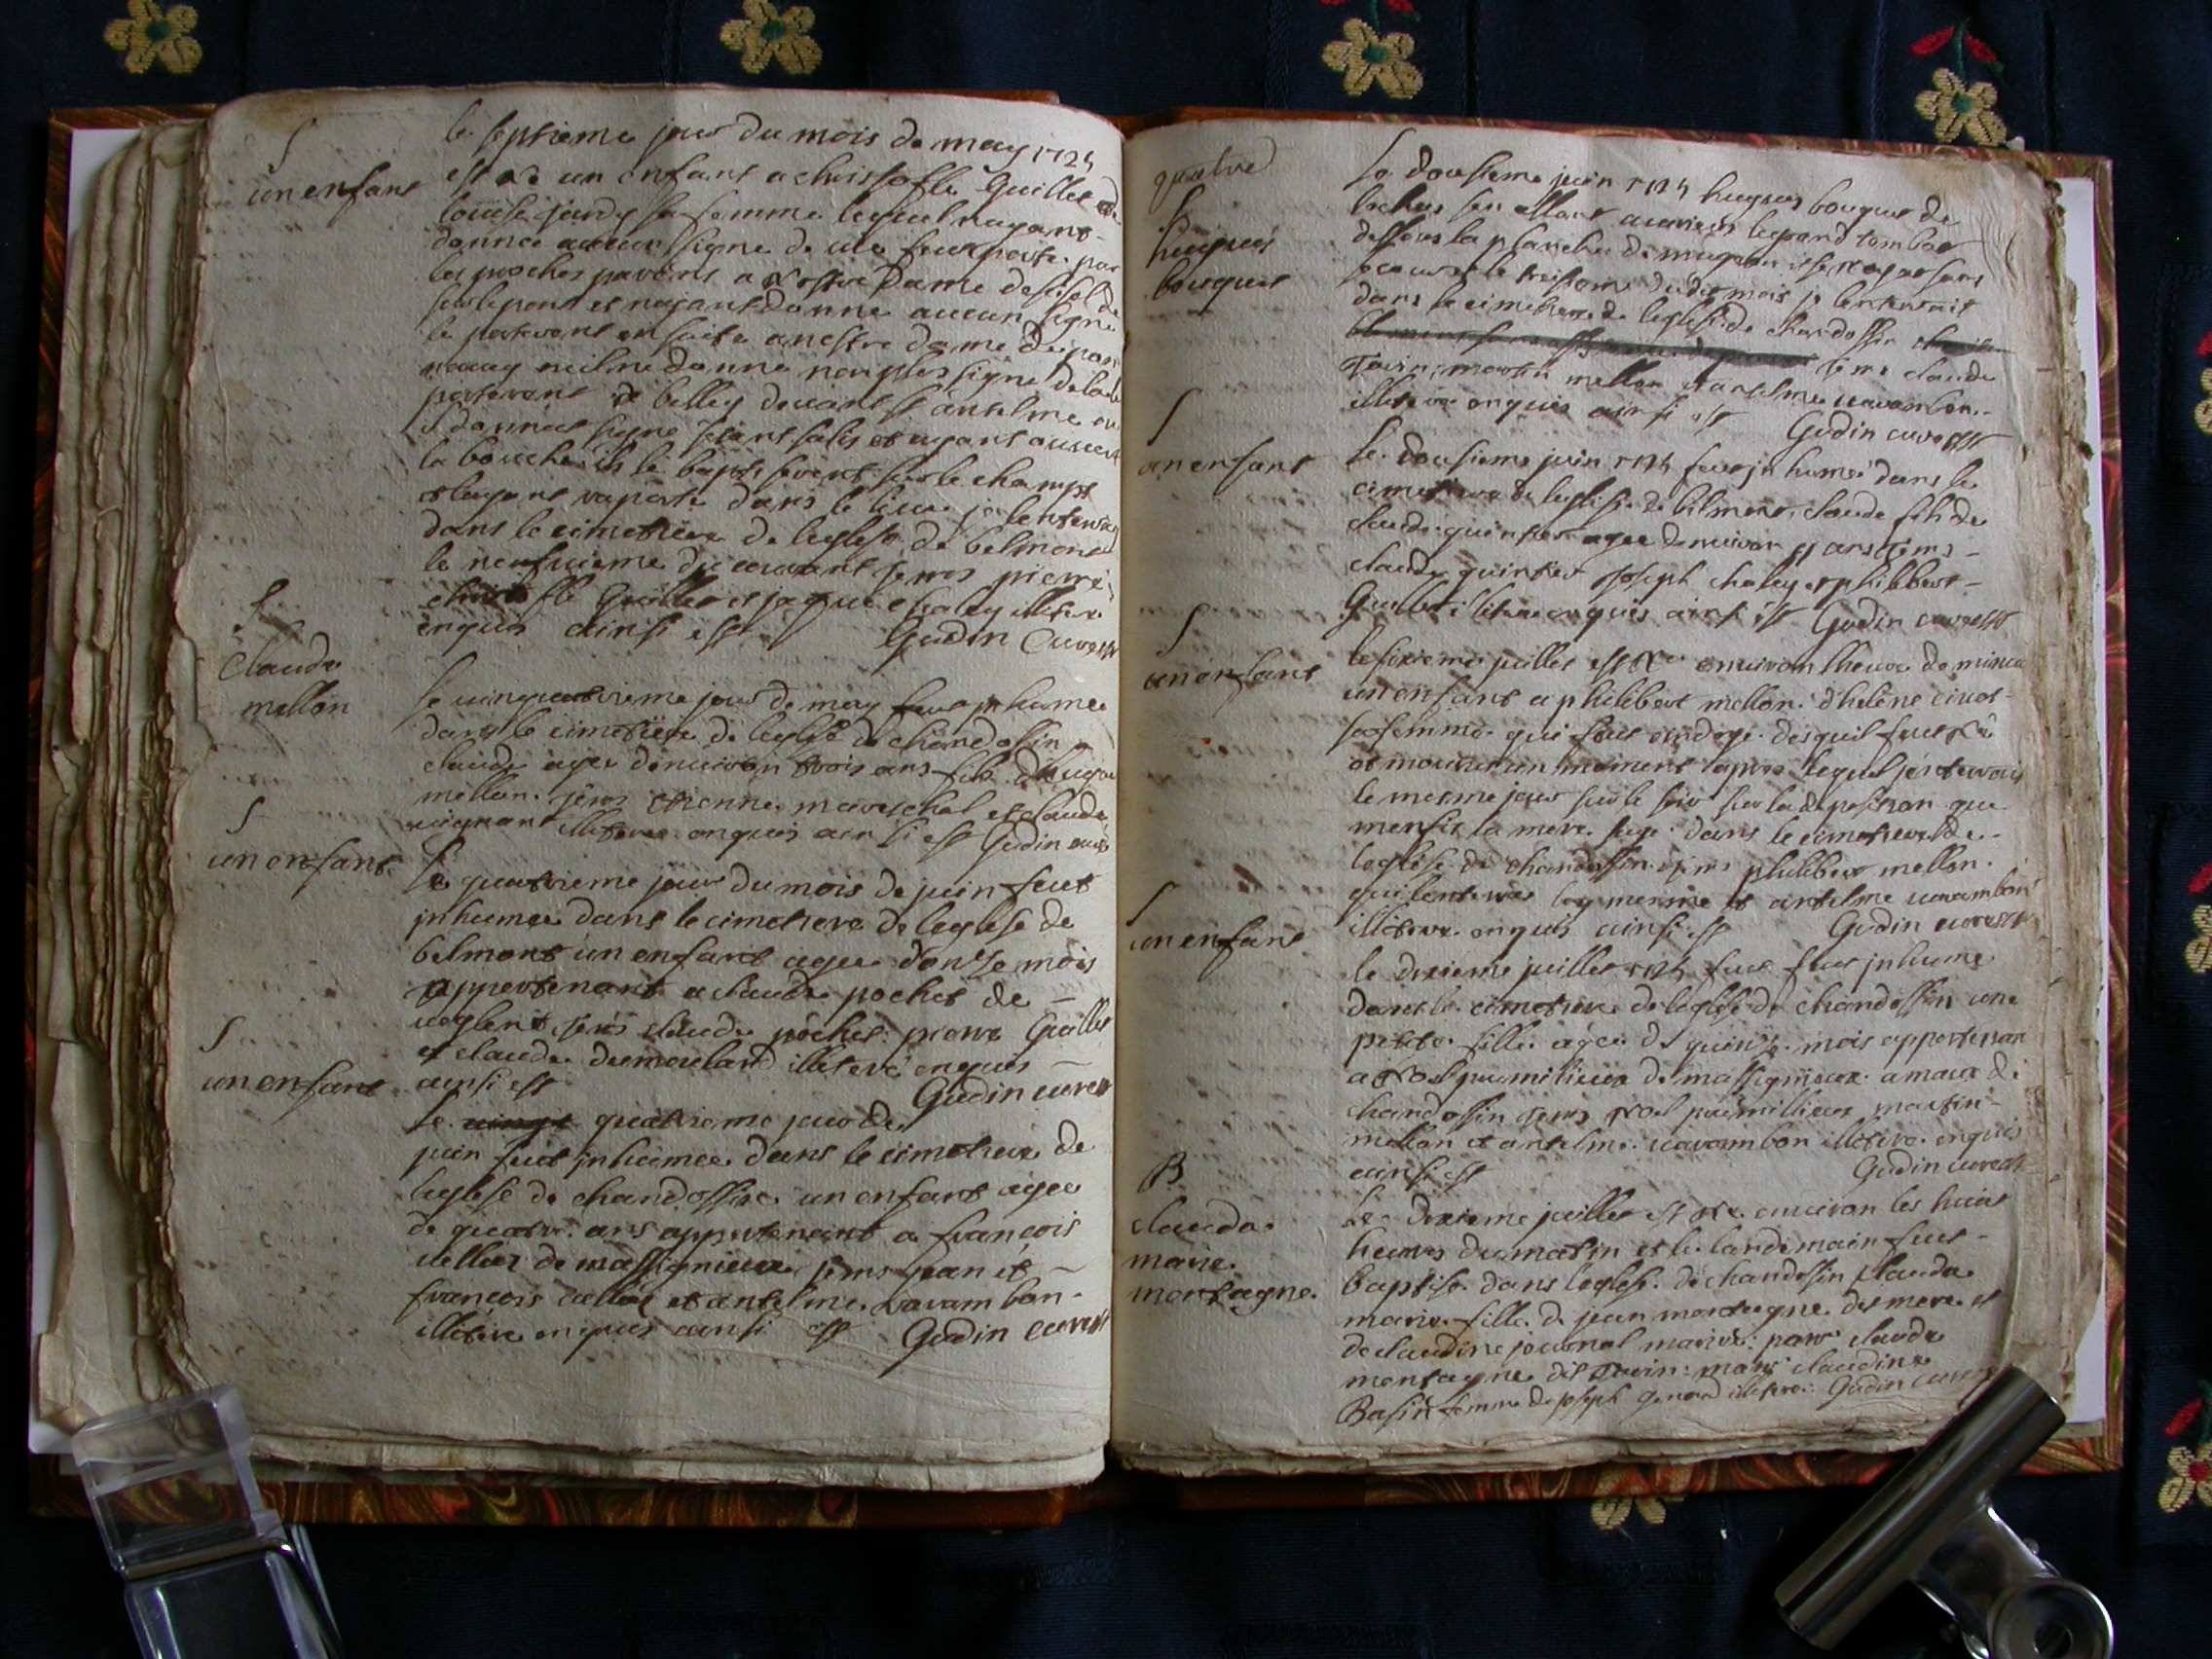 S
un enfant
le septieme jour du mois de may 1724
est né un enfant a christofle Guillet et de
louise jandy sa femme lequel nayant
donnee aucun signe de vie feut porte par
les proches parents a Nostre Dame de
sur le pont et nayant donne aucun signe
le porterent en suite a nostre dame
ne donna non plus signe de la
porterent a belley devant st anselme ou
il donnat signe et ayant ouvert
la bouche ils le baptiserent sur le champt
et layant raporté dans le lieu je lenterrai
dans le cimetiere de leglise de belmont
le neufvieme du courant pms pierre
christofle Guillet et jaque chaley illitere
enquis ainsi est Gudin Curé
S
Claude
mellon
le vingt quatrieme jour de may feut inhumee
dans le cimetiere de leglise de chandossin
claude agee denviron trois ans fils dhugue
mellon pms etienne mareschal et claude
vignant illitere enquis ainsi est Gudin curé
S
un enfant
Le quatrieme jour du mois de juin feut
inhumee dans le cimetiere de leglise de
belmont un enfant agee donse mois
appertenant a claude pochet de
pms claude pochet pierre Guillet
et claude dumoulard illiteré enquis
ainsi est Gudin curé
S
un enfant
le vingt quatrieme jour de
juin feut inhumee dans le cimetiere de
leglise de chandossin un enfant agee
de quatre ans appertenant a francois
de massignieux pms jean et
francois et antelme varambon
illitere enquis ainsi est Gudin curé
quatre
S
hugues
bouquet
Le dousieme juin 1724 hugues bouquet de
sen allant tomba
dessous la planche de
secours le treisieme dudit mois je lenterrait
dans le cimetiere de leglise de chandossin
pms claude
martin mellon et antelme varambon
illitere enquis ainsi est Gudin curé
S
un enfant
le dousieme juin 1724 feut inhumé dans le
cimetiere de leglise de belmont claude fils de
claude quinson agee denviron ans pms
claude quinson joseph chaley et philibert
Guillet illitere enquis ainsi est Gudin curé
S
un enfant
le sixieme juillet est né environ lheure de minuit
un enfant a philibert mellon dhelene
sa femme qui feut ondoyé des quil feut né
et mourut un moment apres lequel jenterrais
le mesme jour sur le soir sur la deposition que
men fit la mere sage dans le cimetiere de
leglise de chandossin pms philibert mellon
qui lenterrat luy mesme et antelme varambon
illitere enquis ainsi est Gudin curé
S
un enfant
le dixieme juillet 1724 feut inhume
dans le cimetiere de leglise de chandossin une
petite fille agee de quinse mois appertenant
a Noel pumilieux de massignieux amour de
chandossin pms Noel pumillieux martin
mellon et antelme varambon illitere enquis
ainsi est Gudin curé
B
claude
marie
montagne
Le dixieme juillet est né environ les huict
heures du matin et le landemain feut
baptise dans leglise de chandossin claude
marie fille de jean montagne et
de claudine journal mariés parr claude
montagne dit marr claudine
Basin femme de joseph genard illitere Gudin Curé